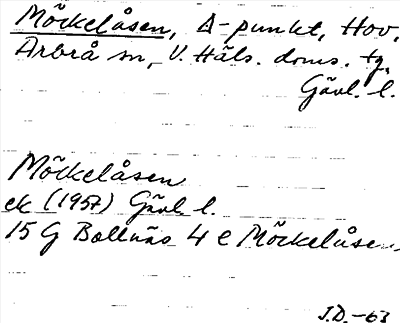 Möckelåsen, Δ-punkt, Hov,
Arbrå sn, V. Häls. doms. tg,
Gävl. l.
Möckelåsen
ek (1957) Gävl. l.
15 G Bollnäs 4 e Möckelåsen
J.D.-63